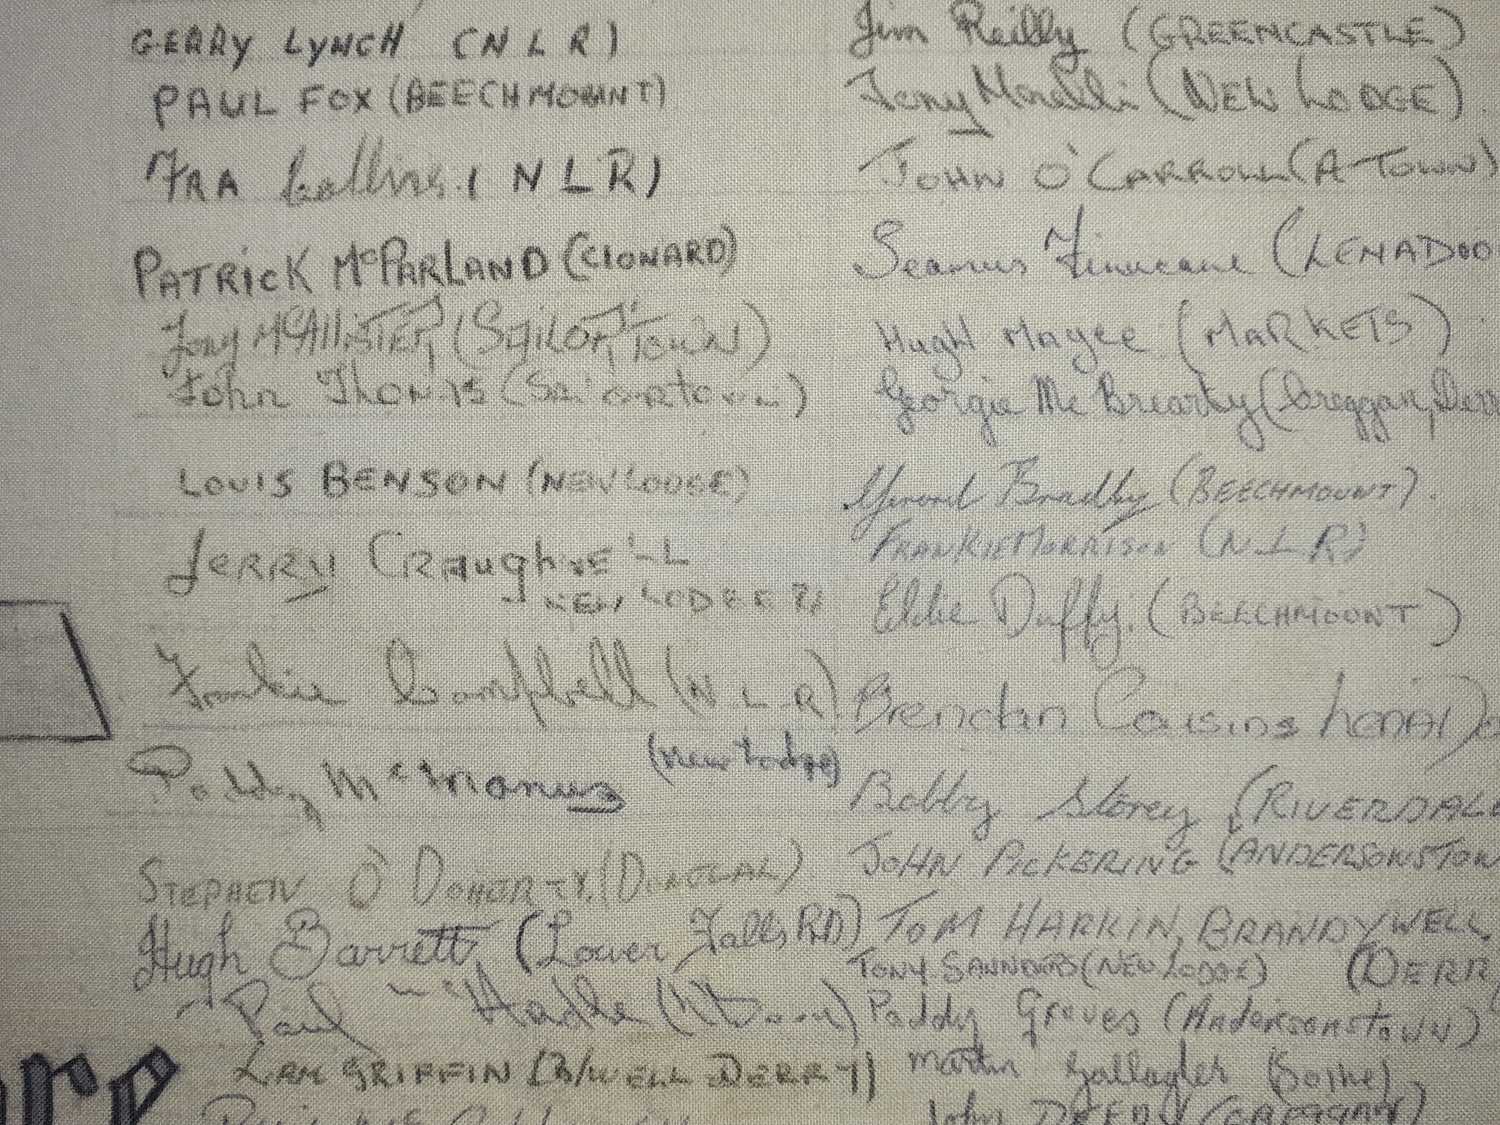 GERRY LYNCH (N L R)
PAUL FOX (BEECHMOUNT)
FRA Collins. (N L R)
PATRICK McPARLAND (CLONARD)
Tony McALLISTER (SAILORTOWN)
John Thomas (Sailortown)
LOUIS BENSON (NEW LODGE)
JERRY
NEW LODGE
Frankie Campbell (N L R)
Paddy McManus (new Lodge)
STEPHEN O'DOHERTY. (DONEGAL)
Hugh Barrett (Lower Falls RD)
Paul
LIAM GRIFFIN (B/WELL DERRY)
Jim Reilly (GREENCASTLE)
Tony Morelli (NEW LODGE)
JOHN O'CARROLL (A-TOWN)
Seamus Finucane (LENADOO
HUGH Magee (MARKETS)
Georgie Mc Brearty (Creggan, Derr
Gerard Bradley (BEECHMOUNT).
FRANKIE MORRISON (N L R)
Eddie Duffy. (BEECHMOUNT)
Brendan Cousins
Bobby Storey (RIVERDALE
JOHN PICKERING (ANDERSONSTOW
TOM HARKIN, BRANDYWELL
TONY SAUNDERS (NEW LODGE) (DERR
Paddy Groves (Andersonstown)
martin Gallagher
John